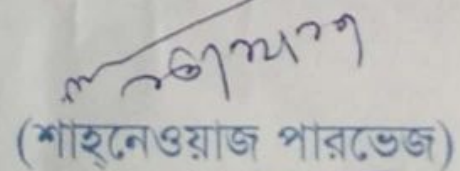 (শাহ্‌নেওয়াজ পারভেজ)